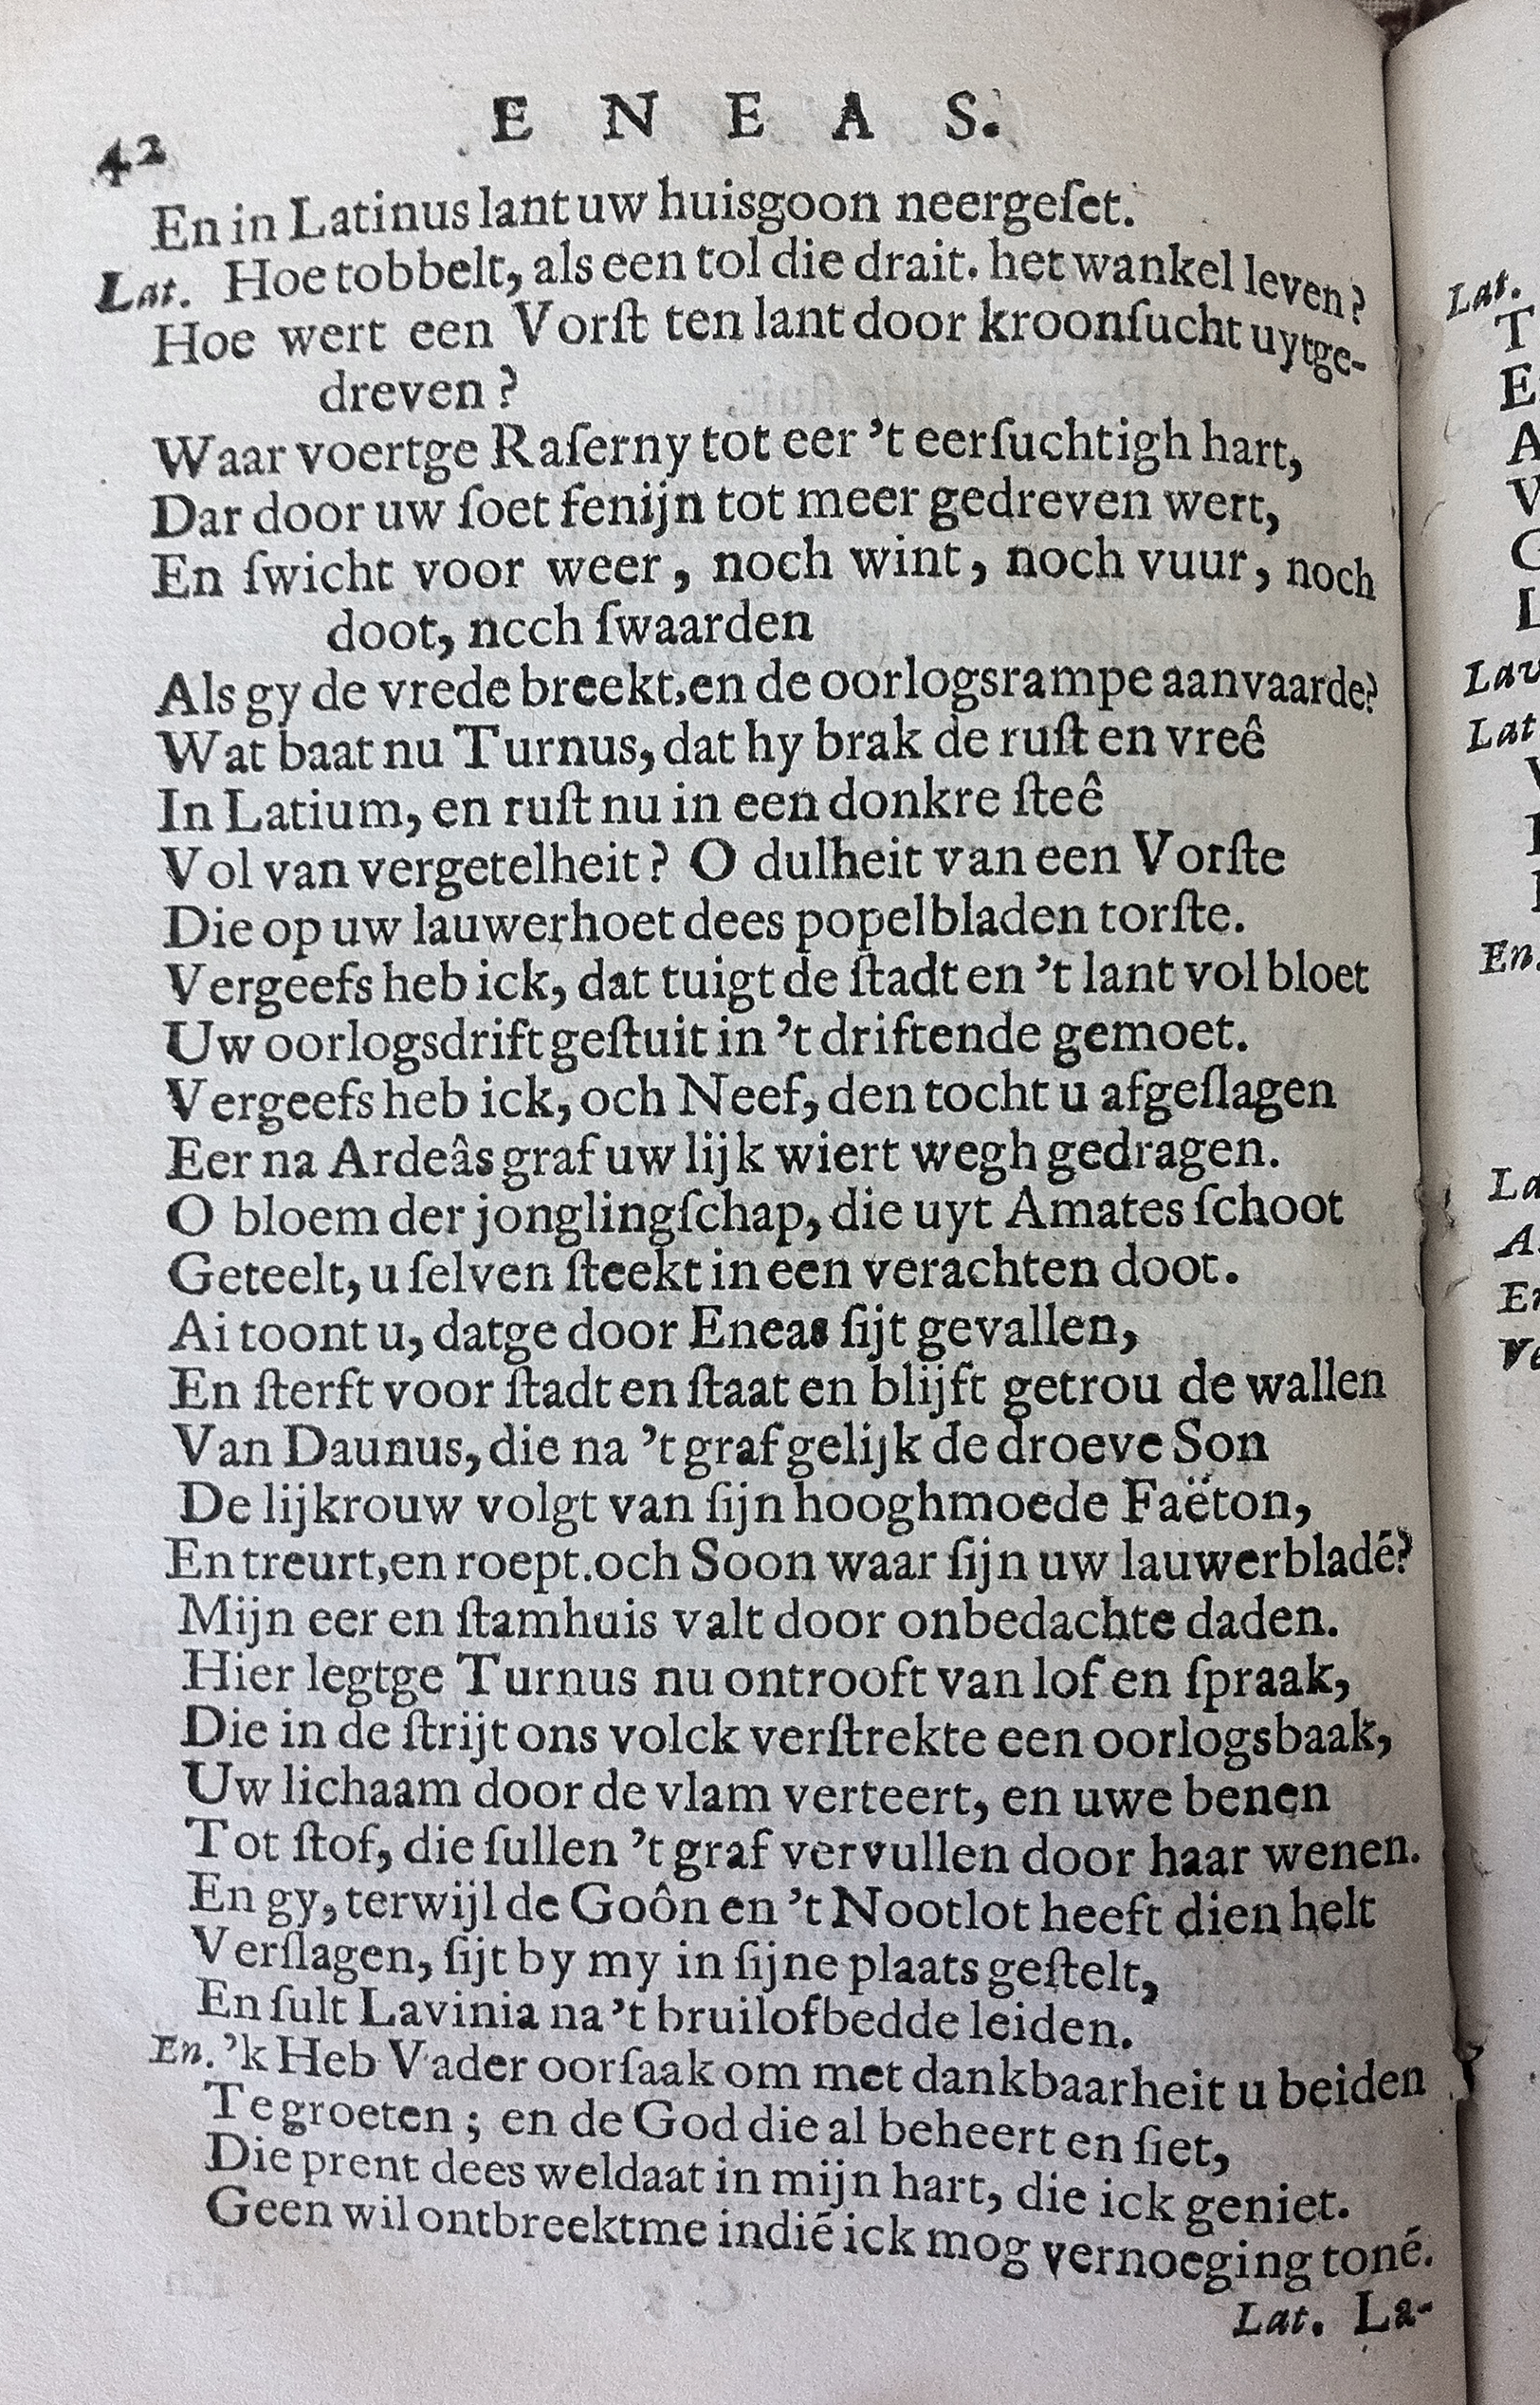 42
E N E A S.
En in Latinus lant uw huisgoon neergeſet.
Lat. Hoe tobbelt, als een tol die drait. het wankel leven?
Hoe wert een Vorſt ten lant door kroonſucht uytge-
dreven?
Waar voertge Raſerny tot eer 't eerſuchtigh hart,
Dar door uw ſoet fenijn tot meer gedreven wert,
En ſwicht voor weer, noch wint, noch vuur, noch
doot, ncch ſwaarden
Als gy de vrede breekt, en de oorlogsrampe aanvaarde?
Wat baat nu Turnus, dat hy brak de ruſt en vreê
In Latium, en ruſt nu in een donkre ſteê
Vol van vergetelheit? O dulheit van een Vorſte
Die op uw lauwerhoet dees popelbladen torſte.
Vergeefs heb ick, dat tuigt de ſtadt en 't lant vol bloet
Uw oorlogsdrift geſtuit in 't driftende gemoet.
Vergeefs heb ick, och Neef, den tocht u afgeſlagen
Eer na Ardeâs graf uw lijk wiert wegh gedragen.
O bloem der jonglingſchap, die uyt Amates ſchoot
Geteelt, u ſelven ſteekt in een verachten doot.
Ai toont u, datge door Eneas ſijt gevallen,
En ſterft voor ſtadt en ſtaat en blijft getrou de wallen
Van Daunus, die na 't graf gelijk de droeve Son
De lijkrouw volgt van ſijn hooghmoede Faëton,
En treurt, en roept. och Soon waar ſijn uw lauwerbladē?
Mijn eer en ſtamhuis valt door onbedachte daden.
Hier legtge Turnus nu ontrooft van lof en ſpraak,
Die in de ſtrijt ons volck verſtrekte een oorlogsbaak,
Uw lichaam door de vlam verteert, en uwe benen
Tot ſtof, die ſullen 't graf vervullen door haar wenen.
En gy, terwijl de Goôn en 't Nootlot heeft dien helt
Verſlagen, ſijt by my in ſijne plaats geſtelt,
En ſult Lavinia na 't bruilofbedde leiden.
En. 'k Heb Vader oorſaak om met dankbaarheit u beiden
Te groeten; en de God die al beheert en ſiet,
Die prent dees weldaat in mijn hart, die ick geniet.
Geen wil ontbreektme indiē ick mog vernoeging tonē.
Lat. La-
Lat.
T
E
A
V
G
L
Lav
Lat
En.
La
A
En
Ve